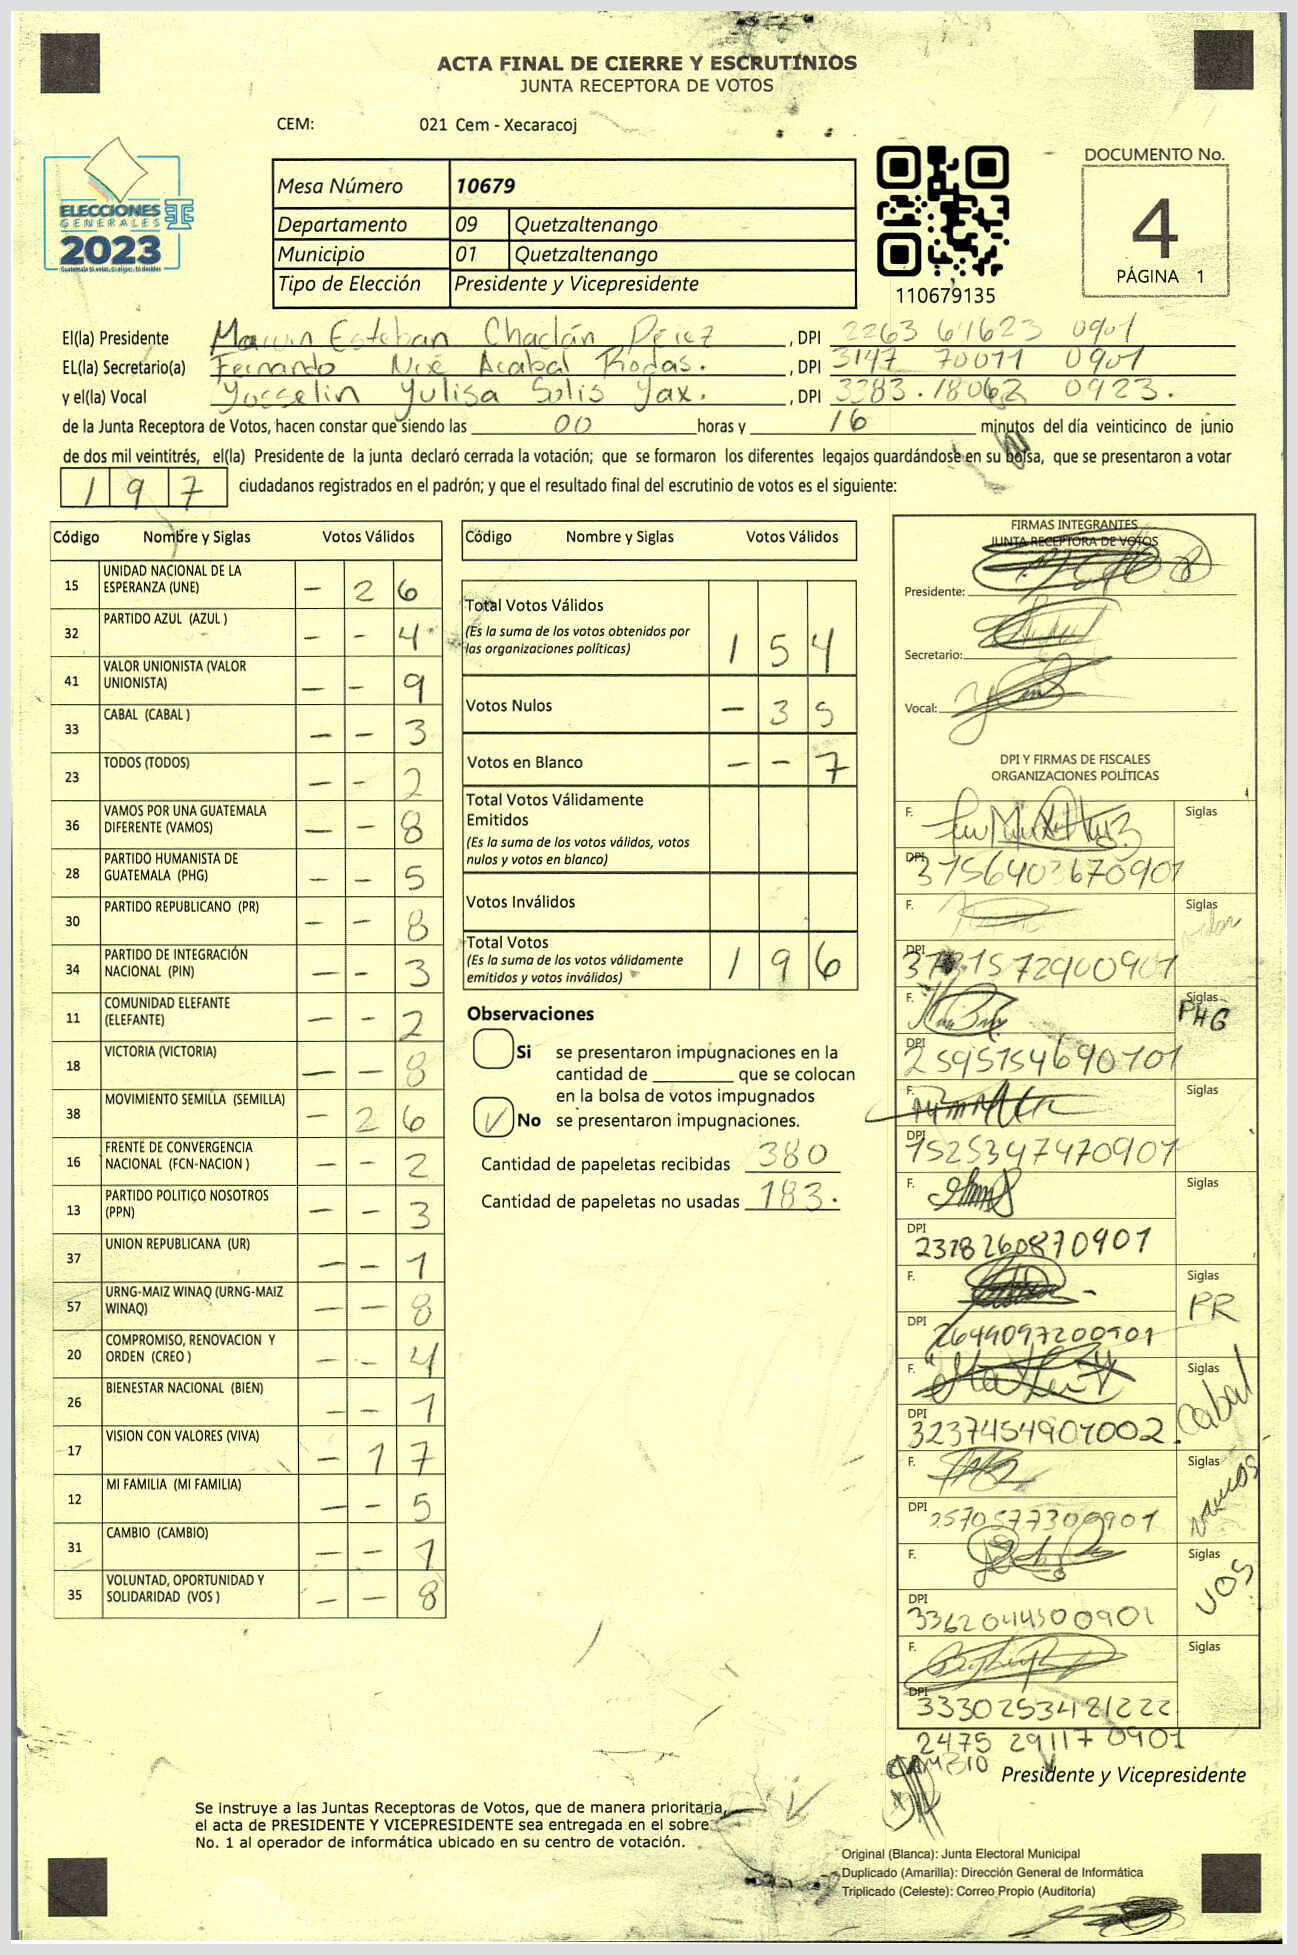 ACTA FINAL DE CIERRE Y ESCRUTINIOS
JUNTA RECEPTORA DE VOTOS
CEM: 021 Cem - Xecaracoj
ELECCIONES
GENERALES
2023
Mesa Número 10679
Departamento 09 Quetzaltenango
Municipio 01 Quetzaltenango
Tipo de Elección Presidente y Vicepresidente
110679135
DOCUMENTO No.
4
PÁGINA 1
El(la) Presidente Marvin Esteban Chaclán Pérez, DPI 2263 61623 0901
EL(la) Secretario(a) Fernando Noé Acabal Rodas., DPI 3147 70071 0901
y el(la) Vocal Yosselin Yulisa Solis Yax., DPI 3383.18062 0923.
de la Junta Receptora de Votos, hacen constar que siendo las 00 horas y 16 minutos del día veinticinco de junio
de dos mil veintitrés, el(la) Presidente de la junta declaró cerrada la votación; que se formaron los diferentes legajos guardándose en su bolsa, que se presentaron a votar
197 ciudadanos registrados en el padrón; y que el resultado final del escrutinio de votos es el siguiente:
Código Nombre y Siglas Votos Válidos
15 UNIDAD NACIONAL DE LA ESPERANZA (UNE) - 2 6
32 PARTIDO AZUL (AZUL ) - - 4
41 VALOR UNIONISTA (VALOR UNIONISTA) - - 9
33 CABAL (CABAL ) - - 3
23 TODOS (TODOS) - - 2
36 VAMOS POR UNA GUATEMALA DIFERENTE (VAMOS) - - 8
28 PARTIDO HUMANISTA DE GUATEMALA (PHG) - - 5
30 PARTIDO REPUBLICANO (PR) - - 8
34 PARTIDO DE INTEGRACIÓN NACIONAL (PIN) - - 3
11 COMUNIDAD ELEFANTE (ELEFANTE) - - 2
18 VICTORIA (VICTORIA) - - 8
38 MOVIMIENTO SEMILLA (SEMILLA) - 2 6
16 FRENTE DE CONVERGENCIA NACIONAL (FCN-NACION ) - - 2
13 PARTIDO POLITICO NOSOTROS (PPN) - - 3
37 UNION REPUBLICANA (UR) - - 1
57 URNG-MAIZ WINAQ (URNG-MAIZ WINAQ) - - 8
20 COMPROMISO, RENOVACION Y ORDEN (CREO ) - - 4
26 BIENESTAR NACIONAL (BIEN) - - 1
17 VISION CON VALORES (VIVA) - 1 7
12 MI FAMILIA (MI FAMILIA) - - 5
31 CAMBIO (CAMBIO) - - 1
35 VOLUNTAD, OPORTUNIDAD Y SOLIDARIDAD (VOS ) - - 8
Código Nombre y Siglas Votos Válidos
Total Votos Válidos
(Es la suma de los votos obtenidos por las organizaciones políticas) 1 5 4
Votos Nulos - 3 5
Votos en Blanco - - 7
Total Votos Válidamente Emitidos
(Es la suma de los votos válidos, votos nulos y votos en blanco)
Votos Inválidos
Total Votos
(Es la suma de los votos válidamente emitidos y votos inválidos) 1 9 6
Observaciones
Si se presentaron impugnaciones en la
cantidad de ________ que se colocan
en la bolsa de votos impugnados
No se presentaron impugnaciones.
Cantidad de papeletas recibidas 380
Cantidad de papeletas no usadas 183.
FIRMAS INTEGRANTES
JUNTA RECEPTORA DE VOTOS
Presidente:
Secretario:
Vocal:
DPI Y FIRMAS DE FISCALES
ORGANIZACIONES POLÍTICAS
F. Siglas
DPI 3756403670901
F. Siglas
DPI
F. Siglas PHG
DPI 2595154690101
F. Siglas
DPI 1525347470901
F. Siglas
DPI 2378260870901
F. Siglas PR
DPI 2649097200901
F. Siglas Cabal
DPI 3237454901002.
F. Siglas Vamos
DPI 2570577300901
F. Siglas VOS
DPI 3362044500901
F. Siglas
DPI 3330253421222
2475 29117 0901
CAMBIO
Presidente y Vicepresidente
Se instruye a las Juntas Receptoras de Votos, que de manera prioritaria,
el acta de PRESIDENTE Y VICEPRESIDENTE sea entregada en el sobre
No. 1 al operador de informática ubicado en su centro de votación.
Original (Blanca): Junta Electoral Municipal
Duplicado (Amarilla): Dirección General de Informática
Triplicado (Celeste): Correo Propio (Auditoría)